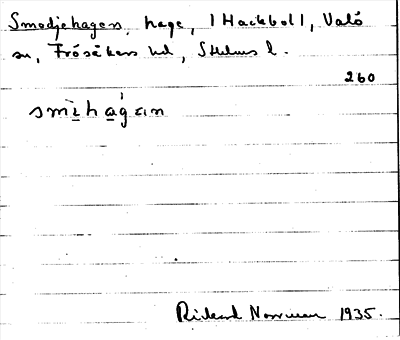 Smedjehagen, hage, 1 Hackbol 1, Valö
sn, Frösåkers hd, Sthlms l.
260
smìhágɛn
Rikard Norrman 1935.